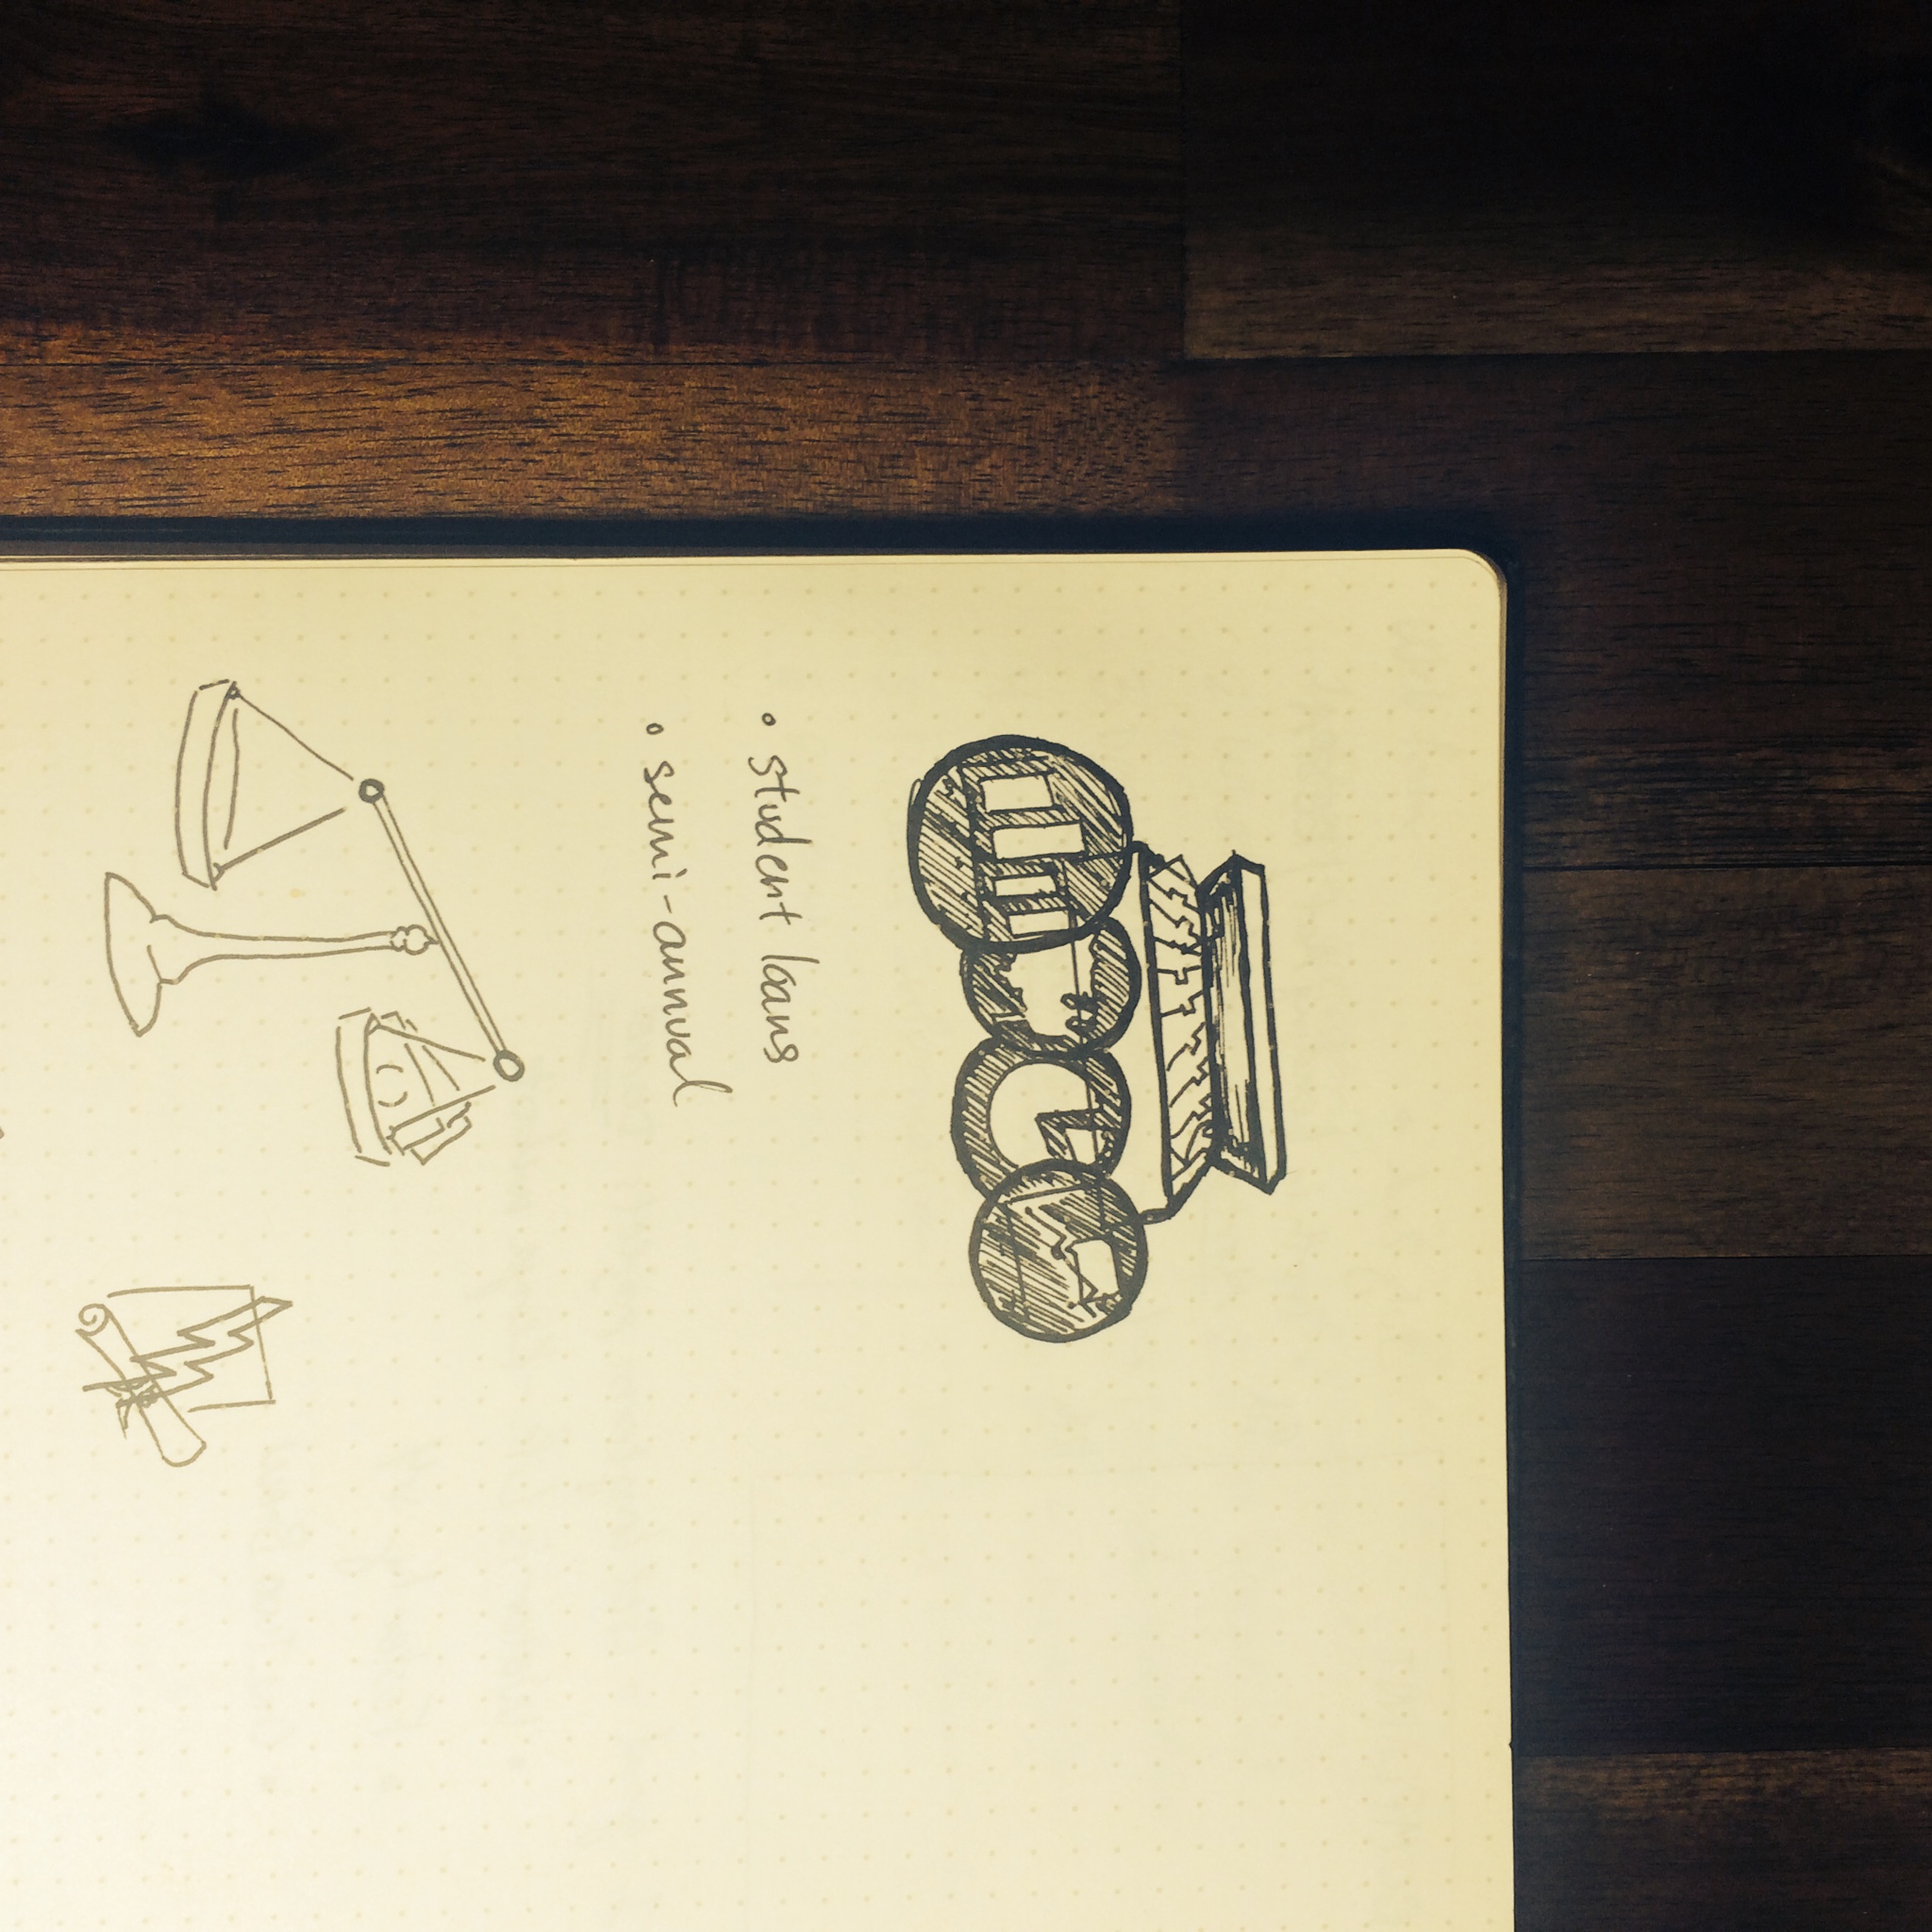 • student loans
• semi-annual